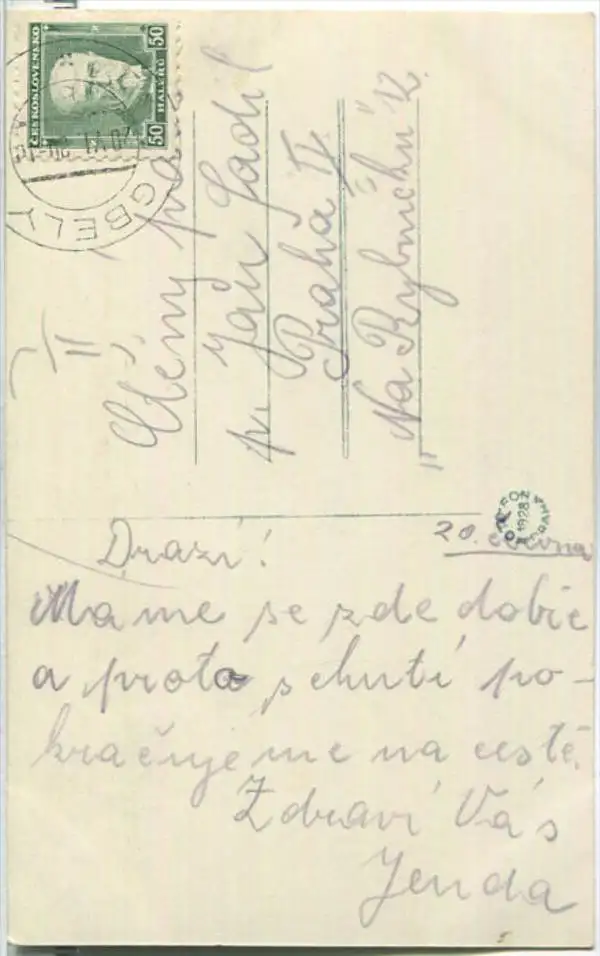 ČESKOSLOVENSKO
50 HALÉŘŮ 50
GBELY
II
Ctěný pán
Jan Ladil
Praha II
"Na Rybníčku" 12.
ORBFOT
1928
PRAHA
20. června
Drazí!
Máme se zde dobře
a proto s chutí po-
kračujeme na cestě.
Zdraví Vás
Jenda